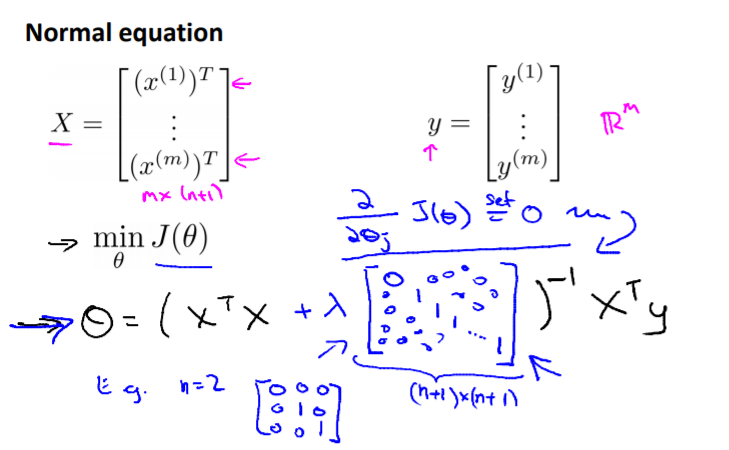 Normal equation
X = [ (x^(1))^T ⋮ (x^(m))^T ] ← ←
y = [ y^(1) ⋮ y^(m) ] ℝ^m
↑
m × (n+1)
∂/∂θ_j J(θ) set = 0
→ min_θ J(θ)
→ θ = ( X^T X + λ [ 0 0 0 0 0 1 0 1 0 1 ... 1 ] )^-1 X^T y
(n+1)×(n+1)
E.g. n=2 [ 0 0 0
0 1 0
0 0 1 ]